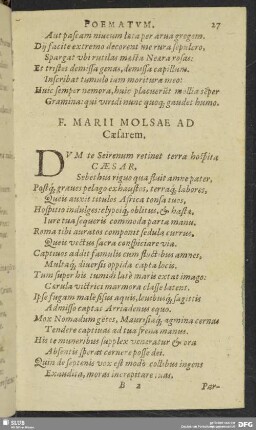 POEMATVM. 27
Aut pascam niueum luca per arua gregem.
Dij facite extremo decorent me rura sepulcro,
Spargat vbi rutilas mœsta Neæra rosas:
Et tristes demissa genas, demissa capillum,
Inscribat tumulo iam moritura meo:
Huic semper nemora, huic placuerūt mollia semper
Gramina: qui viridi nunc quoq; gaudet humo.
F. MARII MOLSAE AD
Cæsarem,
DVM te Seirenum retinet terra hospita
CÆSAR,
Sebethus riguo qua fluit amne pater,
Postq́; graues pelago exhaustos, terraq́; labores,
Queis auxit titulos Africa tonsa tuos,
Hospitio indulges refocijq́; oblitus, & hastæ,
Iure tua sequeris commoda parta manu.
Roma tibi auratos componit sedula currus,
Queis vectus sacra conspiciare via.
Captiuos addit famulis cum fluctibus amnes,
Multaq́; diuersis oppida capta locis.
Tum super his tumidi latè maris extat imago:
Cærula victrici marmora classe latent.
Ipse fugam malè fisus aquis, leuibusq́; sagittis
Admisso captat Arriadenus equo.
Mox Nomadum gētes, Maurusiaq́; agmina cernas
Tendere captiuas ad tua frena manus.
His te muneribus supplex veneratur & ora
Absentis sperat cernere posse dei.
Quin de septenis vox est modò collibus ingens
Exaudita, moras increpitare tuas.
B 2 Par-
SLUB
DFG